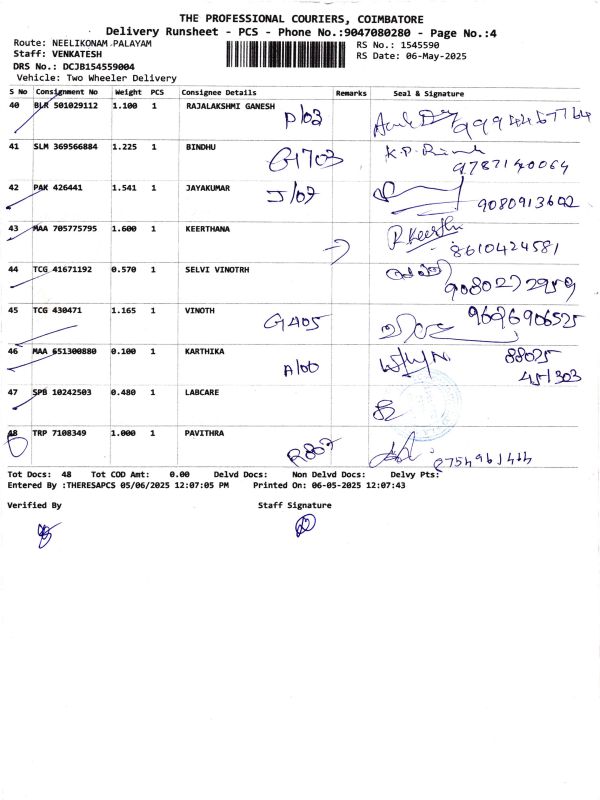 THE PROFESSIONAL COURIERS, COIMBATORE
Delivery Runsheet - PCS - Phone No.:9047080280 - Page No.:4
Route: NEELIKONAM PALAYAM
Staff: VENKATESH
DRS No.: DCJB154559004
Vehicle: Two Wheeler Delivery
RS No.: 1545590
RS Date: 06-May-2025
S No Consignment No Weight PCS Consignee Details Remarks Seal & Signature
40 BLR 501029112 1.100 1 RAJALAKSHMI GANESH
41 SLM 369566884 1.225 1 BINDHU G1703 9787140064
42 PAK 426441 1.541 1 JAYAKUMAR J/07 9080913602
43 MAA 705775795 1.600 1 KEERTHANA R Keerthi 8610424581
44 TCG 41671192 0.570 1 SELVI VINOTRH
45 TCG 430471 1.165 1 VINOTH G405 9696906525
46 MAA 651300880 0.100 1 KARTHIKA A/00 88025
451303
47 SPB 10242503 0.480 1 LABCARE
48 TRP 7108349 1.000 1 PAVITHRA R807
Tot Docs: 48 Tot COD Amt: 0.00 Delvd Docs: Non Delvd Docs: Delvy Pts:
Entered By :THERESAPCS 05/06/2025 12:07:05 PM Printed On: 06-05-2025 12:07:43
Verified By Staff Signature